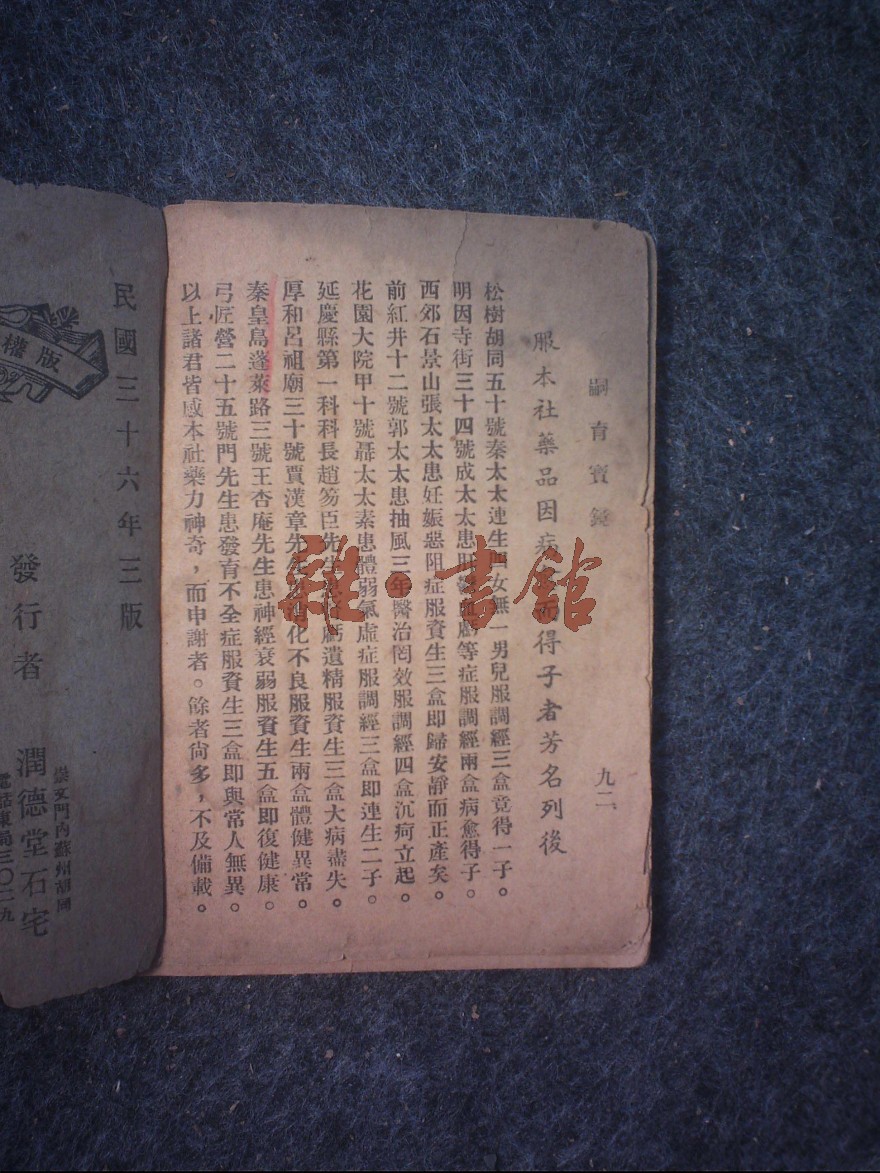 嗣育寶鑑
九二
服本社藥品因病而得子者芳名列後
松樹胡同五十號秦太太連生四女無一男兒服調經三盒竟得一子。
明因寺街三十四號成太太患肝鬱血虧等症服調經兩盒病愈得子。
西郊石景山張太太患妊娠惡阻症服資生三盒即歸安靜而正產矣。
前紅井十二號郭太太患抽風三年醫治罔效服調經四盒沉疴立起。
花園大院甲十號聶太太素患體弱氣虛症服調經三盒即連生二子。
延慶縣第一科科長趙笏臣先生 虧遺精服資生三盒大病盡失。
厚和呂祖廟三十號賈漢章先生患消化不良服資生兩盒體健異常。
秦皇島蓬萊路三號王杏庵先生患神經衰弱服資生五盒即復健康。
弓匠營二十五號門先生患發育不全症服資生三盒即與常人無異。
以上諸君皆感本社藥力神奇，而申謝者。餘者尙多，不及備載。
民國三十六年三版
版權
發行者 潤德堂石宅
崇文門內蘇州胡同
電話東局三〇二九
雜·書館